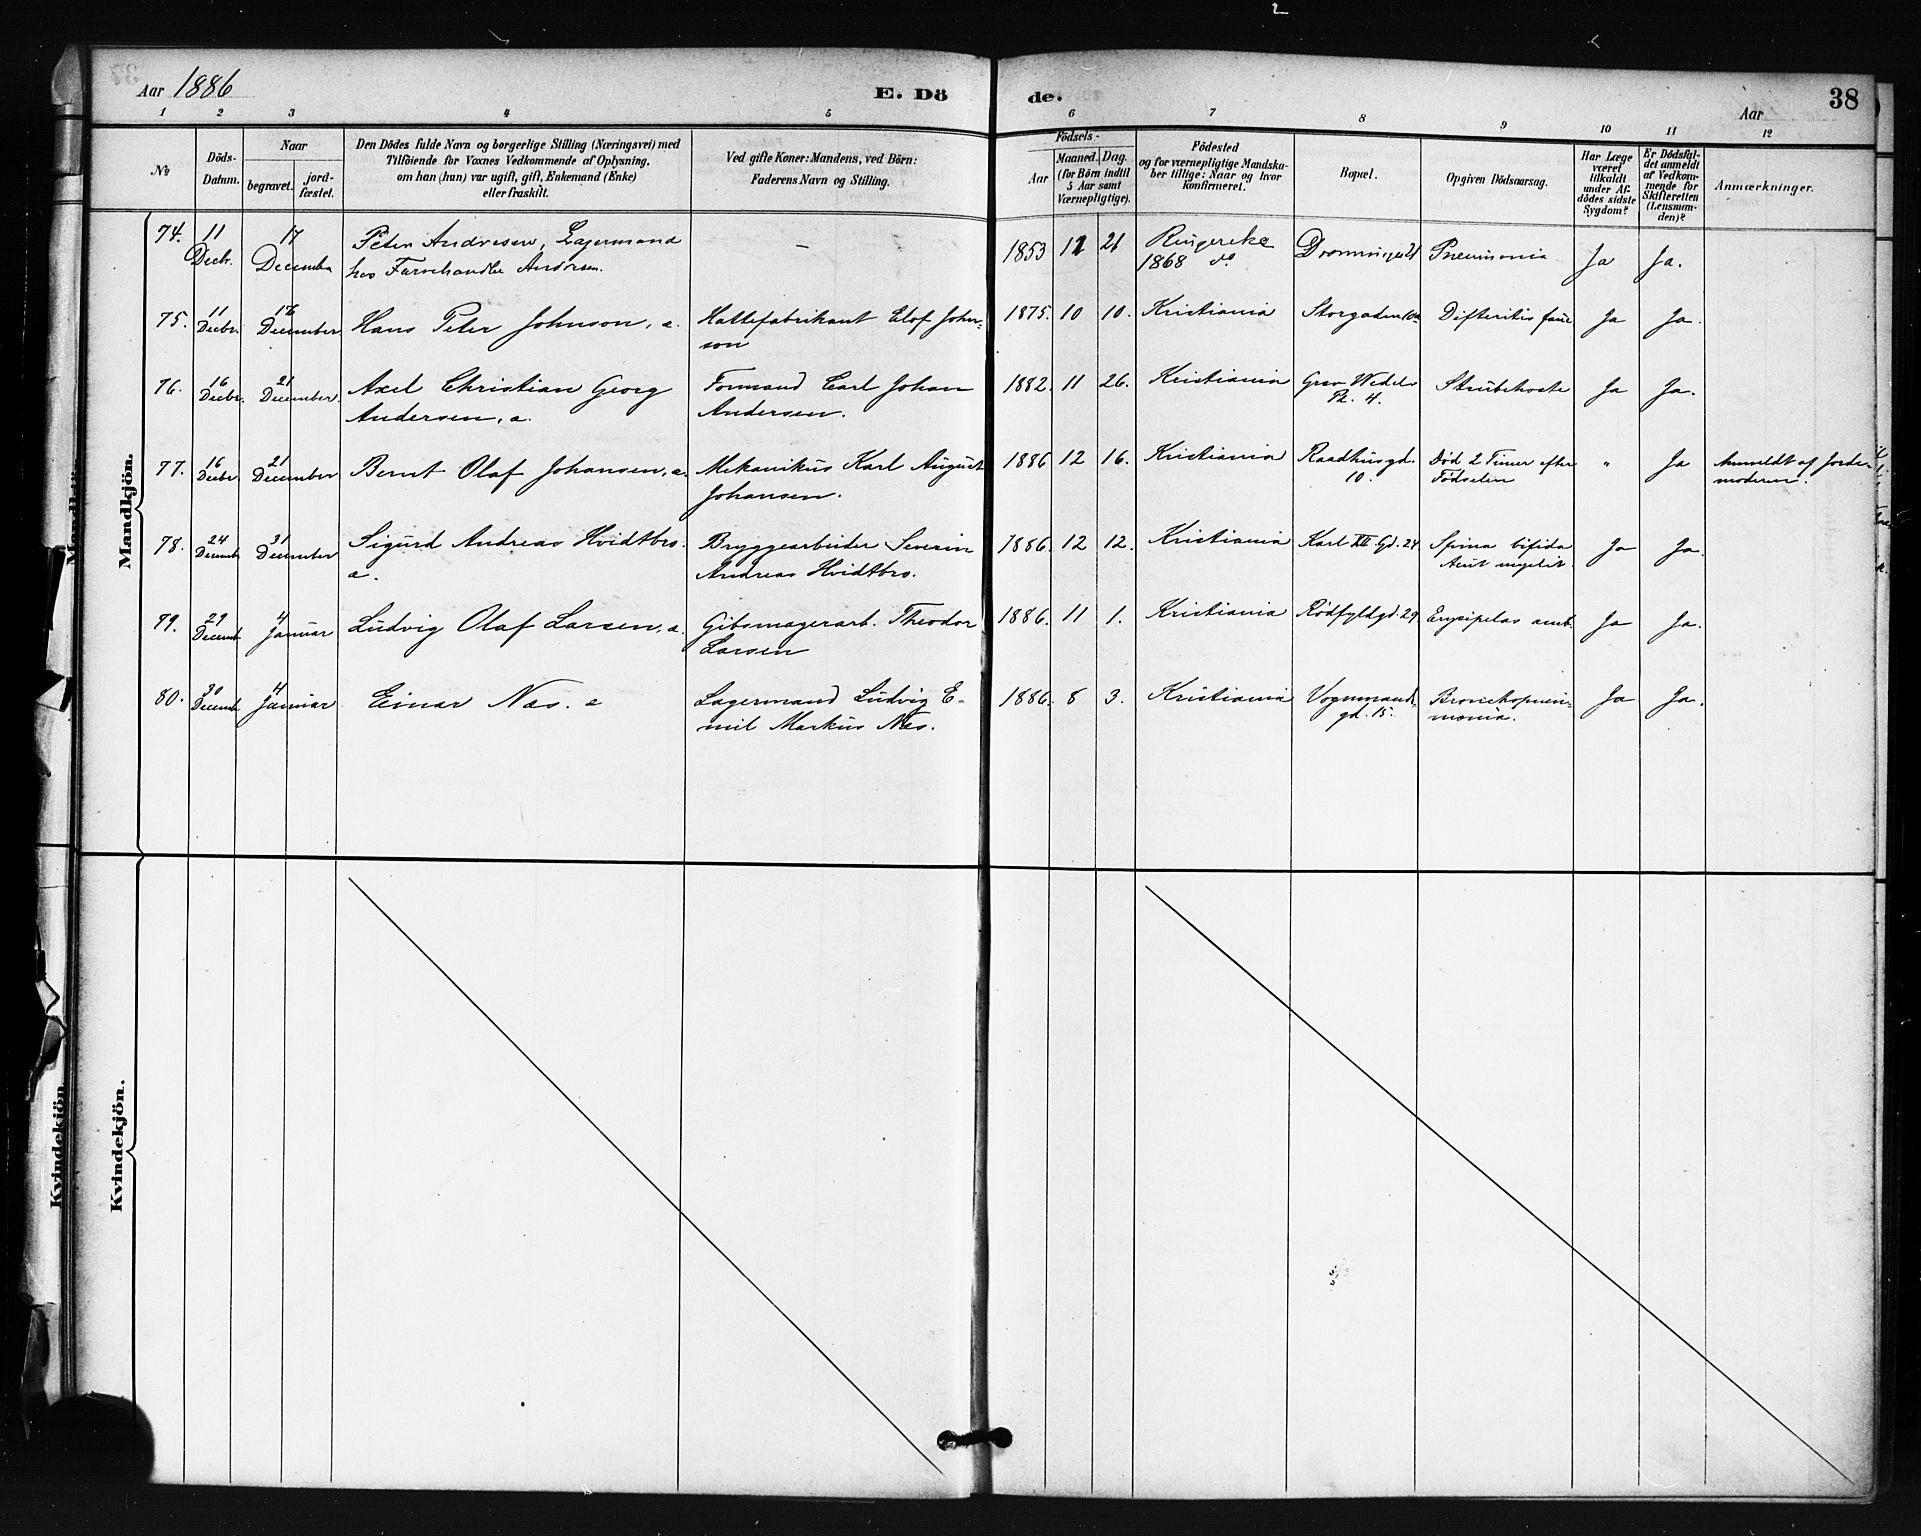 Aar 1886
E. Dö
de.
Aar
38
1 2 3 4 5 6 7 8 9 10 11 12
No
Döds-
Datum.
Naar
begravet.
jord-
fæstet.
Den Dödes fulde Navn og borgerlige Stilling (Næringsvei) med
Tilföiende for Voxnes Vedkommende af Oplysning,
om han (hun) var ugift, gift, Enkemand (Enke)
eller fraskilt.
Ved gifte Koner: Mandens, ved Börn:
Faderens Navn og Stilling.
Födsels-
Aar
Maaned. Dag.
(for Börn indtil
5 Aar samt
Værnepligtige).
Födested
og for værnepligtige Mandska-
ber tillige: Naar og hvor
konfirmeret.
Bopæl.
Opgiven Dödsaarsag.
Har Læge
været
tilkaldt
under Af-
dödes sidste
Sygdom?
Er Dödsfal-
det anmeldt
af Vedkom-
mende for
Skifteretten
(Lensman-
den)?
Anmærkninger.
Mandkjön.
74. 11 17 Peter Andresen, Lagermand — 1853 21 Ringerike Pneumonia Ja Ja.
Decbr. December hos Farvehandler Andresen. 1868 do
75. 11 Hans Peter Johnson, a. Hattefabrikant Elof John- 1875. 10 10. Kristiania Difteritis fauc Ja Ja.
Decbr. December son
76. 16 21 Axel Christian Georg Formand Carl Johan 1882. 11 26. Kristiania Grev Wedels Strubehoste Ja Ja.
Decbr. December Andersen, a. Andersen. Pl. 4.
77. 16 21 Bernt Olaf Johansen, a. Mekanikus Karl August 1886 12 16. Kristiania Raadhusgd. Död 2 Timer efter " Ja Anmeldt af Jorde-
Decbr. December Johansen. 10. Födselen moderen.
78. 24 31 Sigurd Andreas Hvidtbro. Bryggearbeider Severin 1886. 12 12. Kristiania Karl XII Gd. 24. Spina bifida Ja Ja.
Decemb. December a. Andreas Hvidtbro. Acut myelit.
79. 29 4 Ludvig Olaf Larsen, a. Gibsmagerarb. Theodor 1886. 11 1. Kristiania Rödfyldgd. 29. Erysipelas amb. Ja Ja.
Decemb. Januar Larsen
80. 30 4 Einar Næs. a Lagermand Ludvig E- 1886. 8 3. Kristiania Vognmands- Bronchopneu- Ja Ja.
Decemb. Januar mil Markus Næs. gd. 15. monia.
Kvindekjön.
Kvindekjön